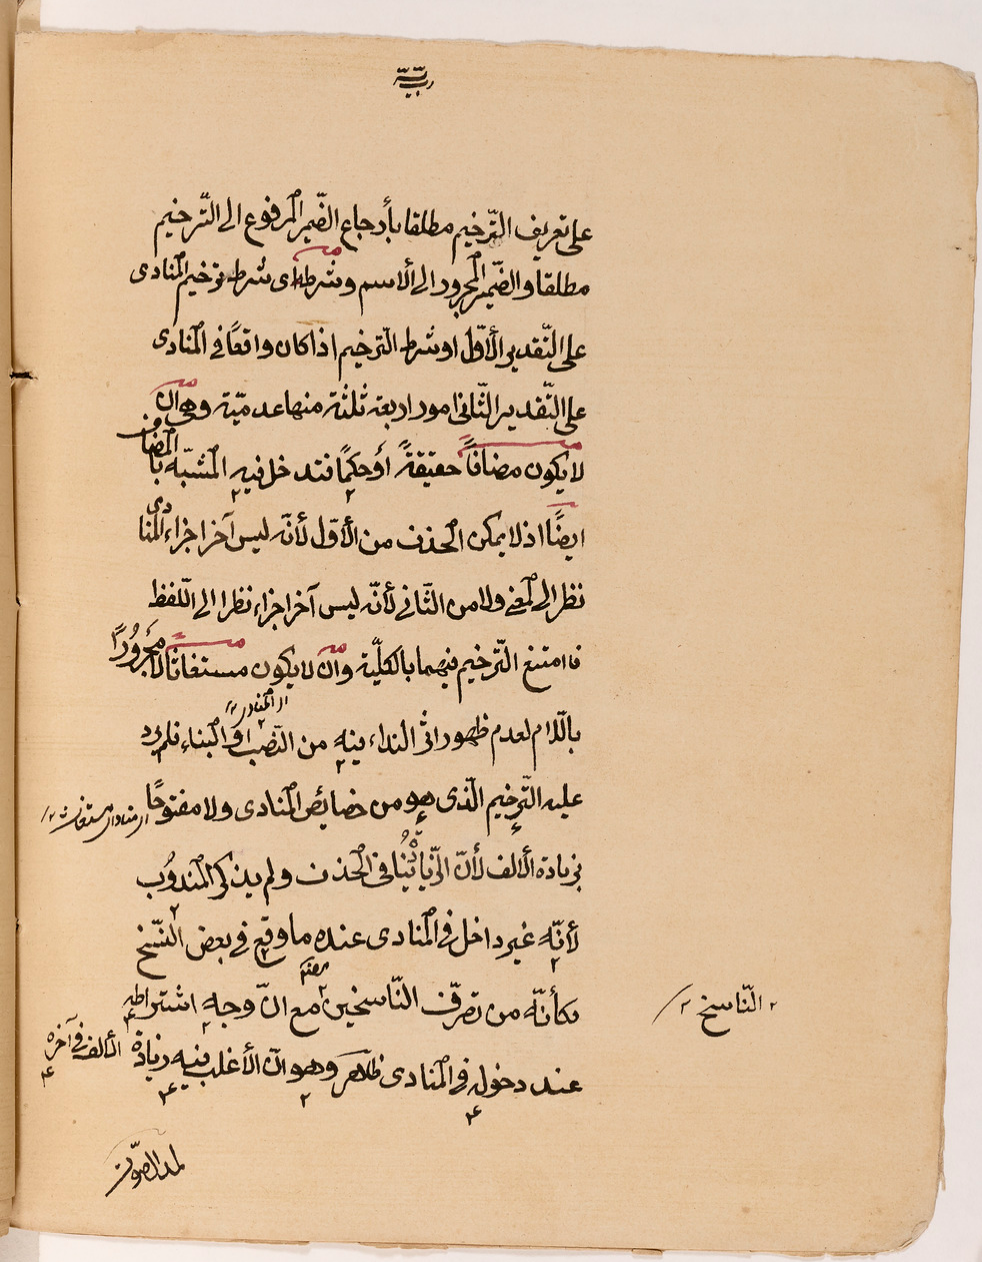 على تعريف التّرخيم مطلقا بأرجاع الضّمير المرفوع الى التّرخيم
مطلقا والضّمير المجرور الى الاسم وشرطه اى شرط ترخيم المنادى
على التّقدير الأوّل او شرط التّرخيم اذا كان واقعًا فى المنادى
على التّقدير الثّانى امور اربعة ثلثة منها عدميّة وهى ان
لا يكون مضافاً حقيقةً أو حكمًا فتدخل فيه المشبّه بالمضاف
ايضًا اذ لا يمكن الحذف من الأوّل لأنّه ليس آخر اجزاء المنادى
نظرا الى المعنى ولا من الثّانى لأنّه ليس آخر اجزاء نظرا الى اللّفظ
فامتنع التّرخيم فيهما بالكلّية وان لا يكون مستغاثا لا مجرورًا
باللّام لعدم ظهور اثر النداء فيه من النّصب او البناء فلم يرد
اى المنادى
عليه التّرخيم الّذى هو من خصائص المنادى ولا مفتوحًا
اى منادى مستغاث
بزيادة الالف لأنّ الزّيادة تُنافى الحذف ولم يذكر المندوب
لأنّه غير داخل فى المنادى عنده ما وقع فى بعض النّسخ
فكأنّه من تصرّف النّاسخين مع انّ وجه اشتراطه
النّاسخ
عند دخوله فى المنادى ظاهر وهو انّ الأغلب فيه زيادة الألف فى آخره
لمد الصّوت